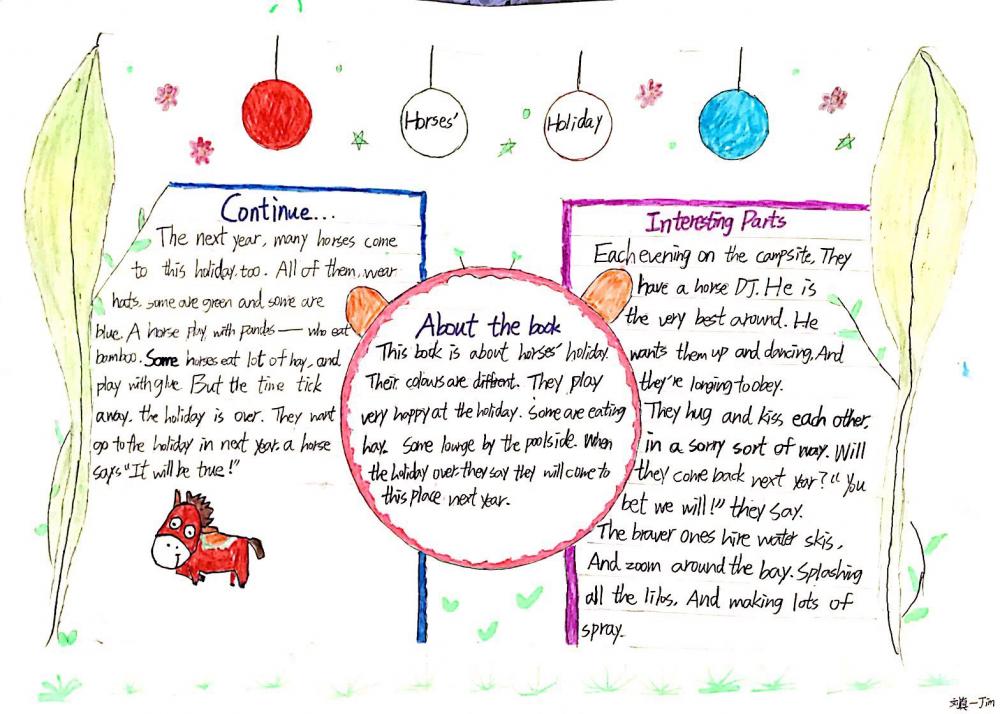 Horses'
Holiday
Continue...
The next year, many horses come
to this holiday, too. All of them, wear
hats, some are green and some are
blue. A horse play with pandas — who eat
bamboo. Some horses eat lot of hay, and
play with glue. But the time tick
away, the holiday is over. They want
go to the holiday in next year. a horse
says "It will be true!"
About the book
This book is about horses' holiday.
Their colours are diffrent. They play
very happy at the holiday. Some are eating
hay. Some lounge by the poolside. When
the holiday over they say they will come to
this place next year.
Interesting Parts
Each evening on the campsite, They
have a horse DJ. He is
the very best around. He
wants them up and dancing, And
they're longing to obey.
They hug and kiss each other,
in a sorry sort of way. Will
they come back next year? "You
bet we will!" they say.
The braver ones hire water skis,
And zoom around the bay. Splashing
all the lilos, And making lots of
spray.
一Jim